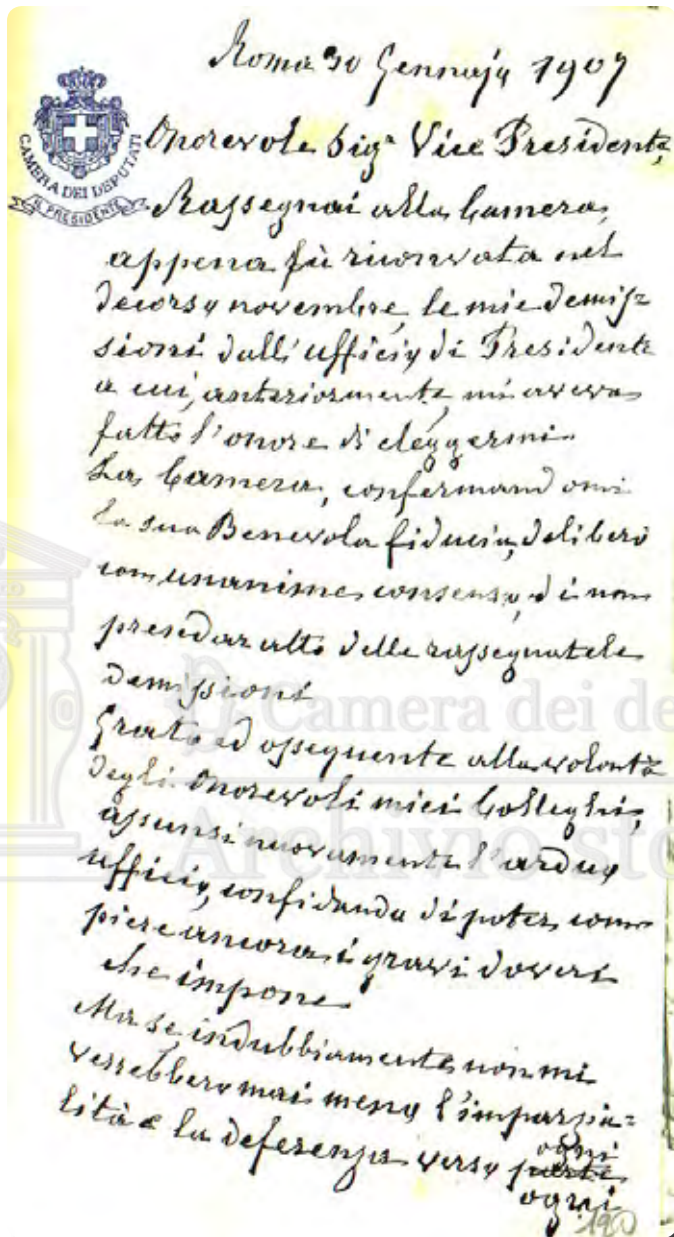 Roma 30 Gennajo 1907
CAMERA DEI DEPUTATI
IL PRESIDENTE
Onorevole Sigr Vice Presidente,
Rassegnai alla Camera,
appena fù riconvocata nel
decorso novembre, le mie demis=
sioni dall'ufficio di Presidente
a cui, anteriormente, mi aveva
fatto l'onore di eleggermi.
La Camera, confermandomi
la sua Benevola fiducia, deliberò
con unanime consenso, di non
prender atto delle rassegnatele
demissioni
Grato ed ossequente alla volontà
degli Onorevoli miei Colleghi,
assunsi nuovamente l'arduo
ufficio, confidando di poter com
piere ancora i gravi doveri
che impone
Ma se indubbiamente non mi
verrebbero mai meno l'imparzia=
lità e la deferenza verso ogni
parte
ogni
190
Camera dei de
Archivio sto